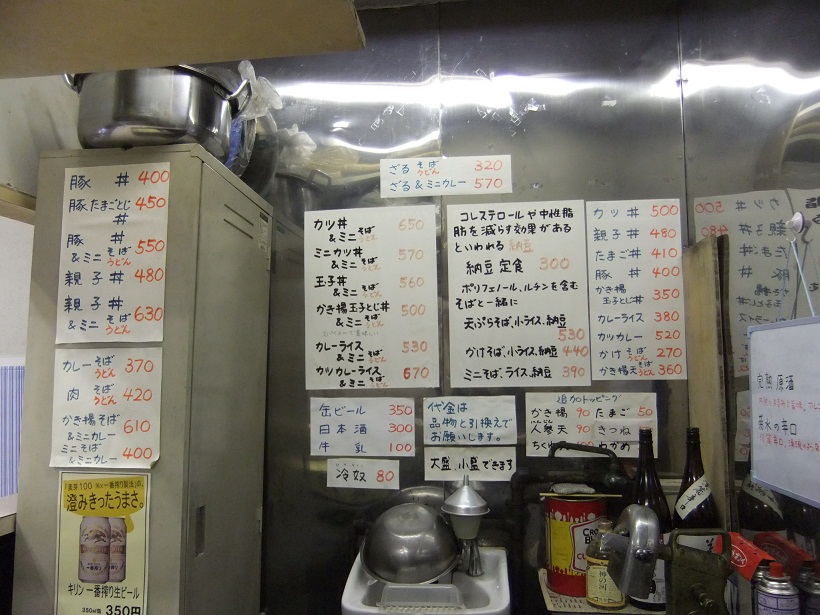 豚 丼 400
豚 たまごとじ 450
丼
豚 丼 550
&ミニ そば うどん
親子丼 480
親子 丼 630
&ミニ そば うどん
カレー そば うどん 370
肉 そば うどん 420
かき揚 そば 610
&ミニカレー
ミニ そば 400
&ミニカレー
澄みきったうまさ。
キリン 一番搾り生ビール
350ml缶 350円
ざる そば うどん 320
ざる&ミニカレー 570
カツ丼 650
&ミニ そば うどん
ミニカツ丼 570
&ミニ そば うどん
玉子丼 560
&ミニ そば うどん
かき揚玉子とじ丼 500
&ミニ そば うどん
カレーライス 530
&ミニ そば うどん
カツカレーライス 670
&ミニ そば うどん
コレステロールや中性脂
肪を減らす効果がある
といわれる 納豆
納豆定食 300
ポリフェノール、ルチンを含む
そばと一緒に
天ぷらそば、小ライス、納豆
530
かけそば、小ライス、納豆 440
ミニそば、ライス、納豆 390
カツ 丼 500
親子丼 480
たまご丼 410
豚 丼 400
かき揚 350
玉子とじ丼
カレーライス 380
カツカレー 520
かけ そば うどん 270
かき揚天 そば うどん 360
缶ビール 350
日本酒 300
牛 乳 100
冷奴 80
代金は
品物と引換えで
お願いします。
大盛、小盛できます
追加トッピング
かき揚 90 たまご 50
人参天 90 きつね
ちくわ 100 わかめ
原酒
の辛口